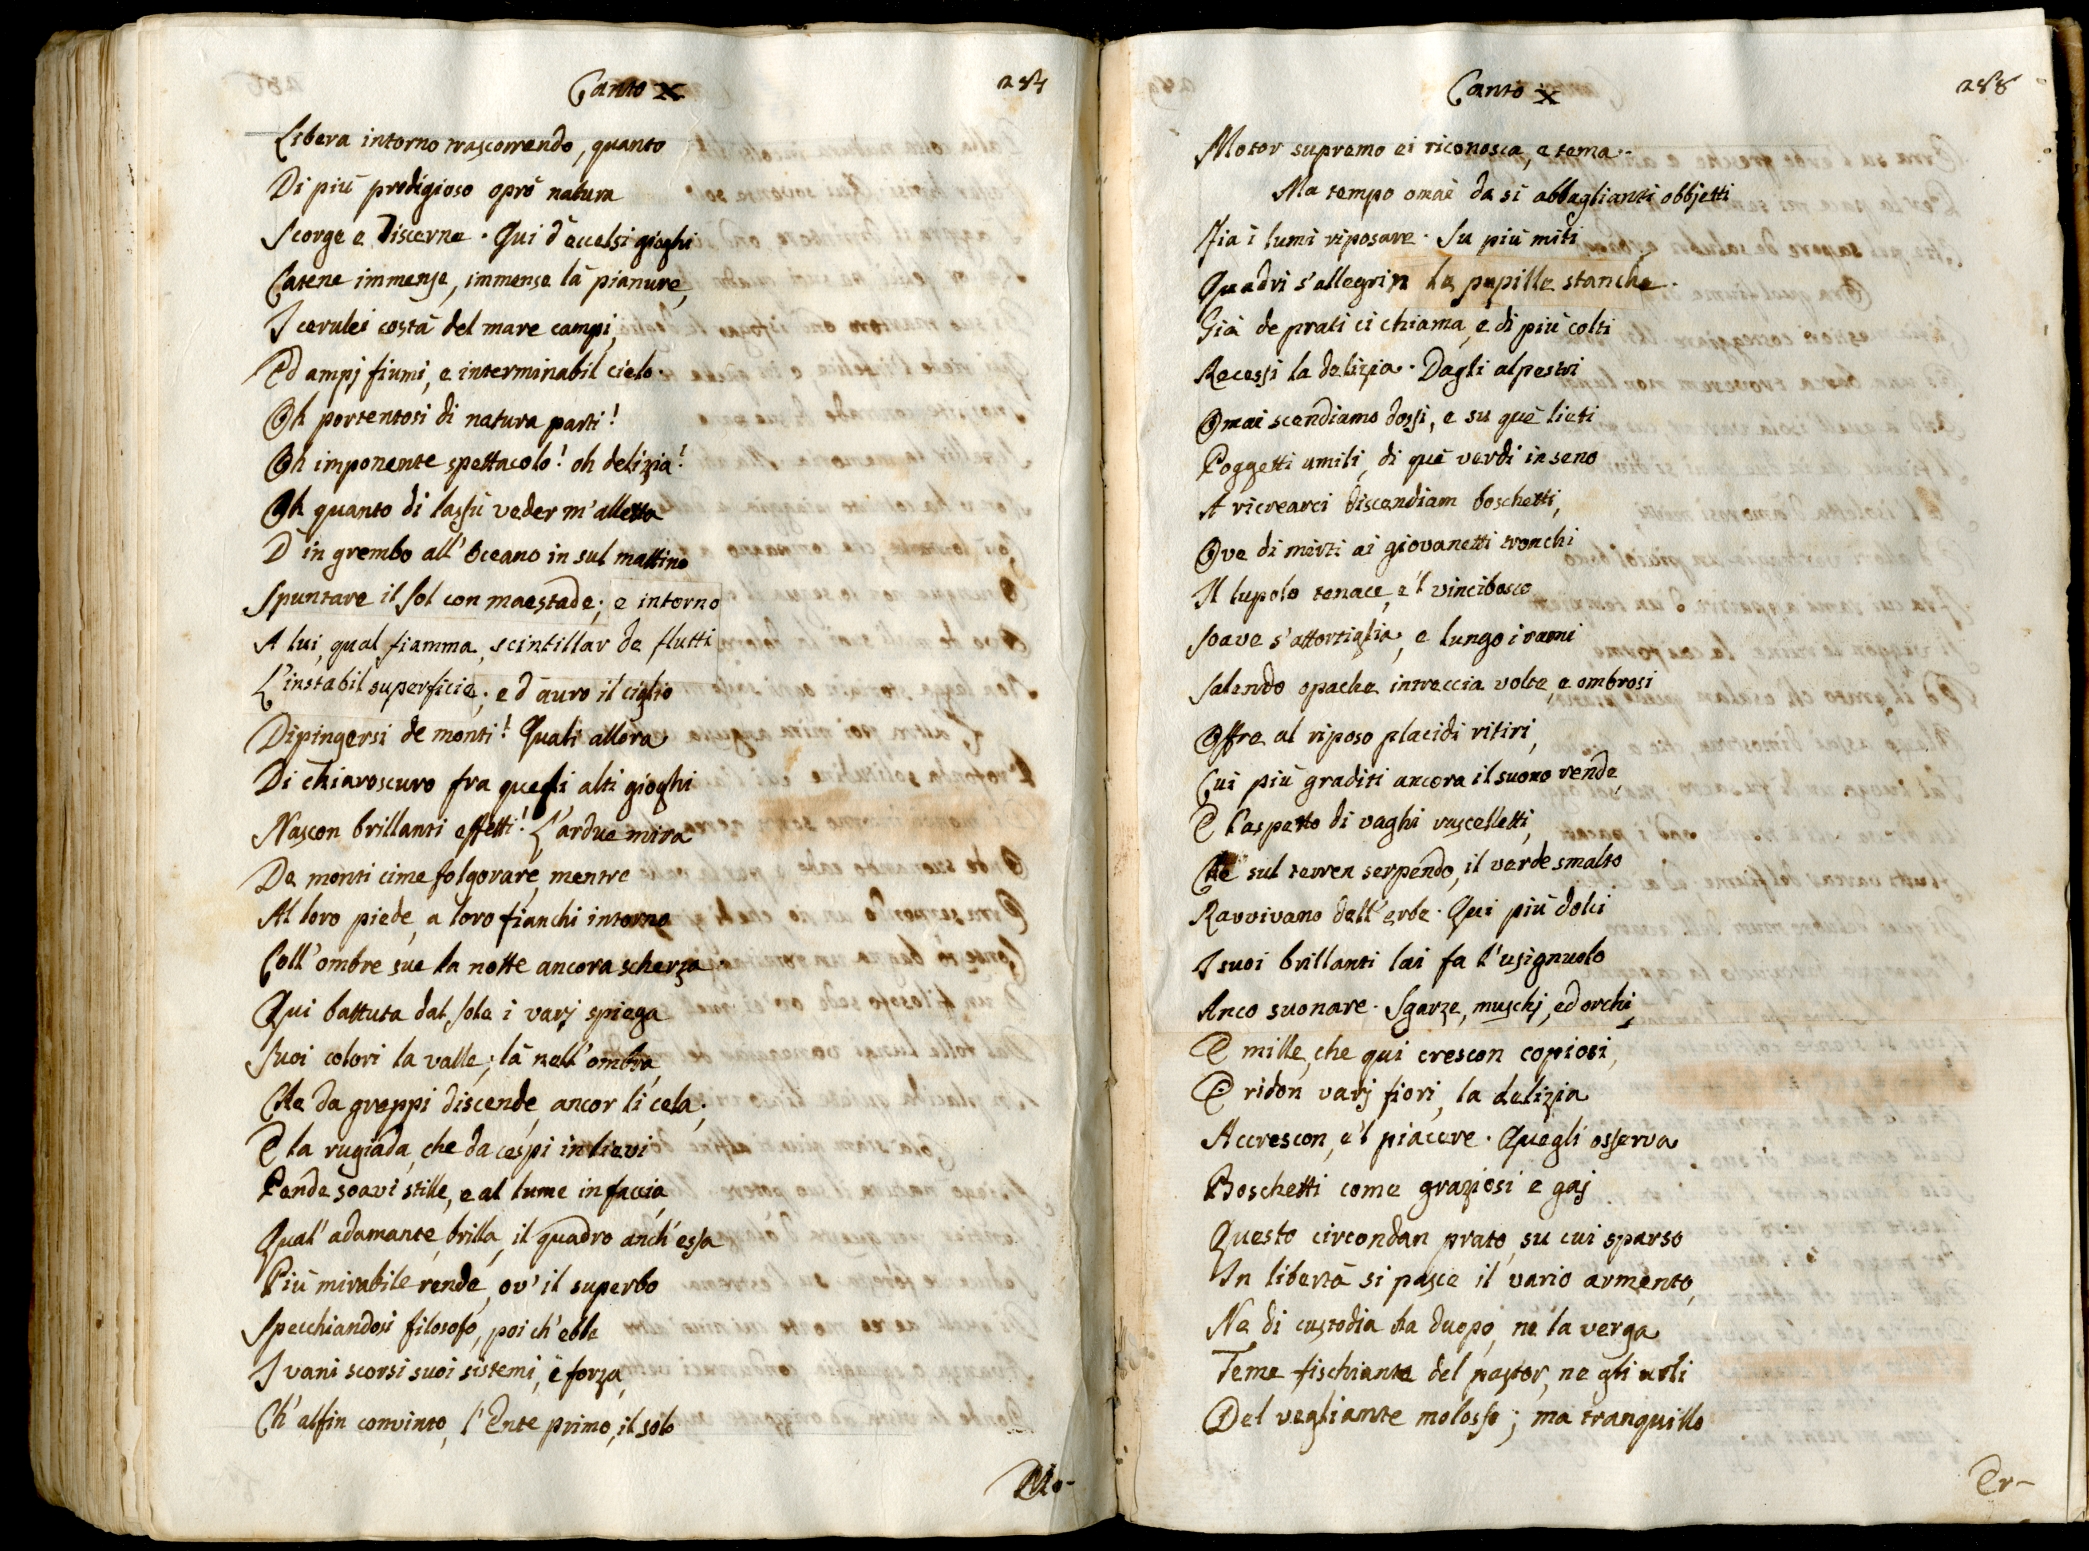 Canto X
287
Libera intorno trascorrendo, quanto
Di più prodigioso oprò natura
Scorge e discerne. Qui d'eccelsi gioghi
Catene immense, immense là pianure,
I cerulei costà del mare campi,
Ed ampj fiumi, e interminabil cielo.
Oh portentosi di natura parti!
Oh imponente spettacolo! oh delizia!
Oh quanto di lassù veder m'alletta
D'in grembo all'Oceano in sul mattino
Spuntare il Sol con maestade; e intorno
A lui, qual fiamma, scintillar de flutti
L'instabil superficie; e d'auro il ciglio
Dipingersi de monti! Quali allora
Di chiaroscuro fra quegli alti gioghi
Nascon brillanti effetti! L'ardue mira
De monti cime folgorare, mentre
Al loro piede, a loro fianchi intorno
Coll'ombre sue la notte ancora scherza.
Qui battuta dal Sole i varj spiega
Suoi colori la valle; là nell'ombra,
Che da greppi discende, ancor li cela;
E la rugiada, che da cespi in lievi
Pende soavi stille, e al lume in faccia,
Qual'adamante, brilla, il quadro anch'essa
Più mirabile rende, ov'il superbo
Specchiandosi filosofo, poi ch'ebbe
I vani scorsi suoi sistemi, è forza,
Ch'alfin convinto, l'Ente primo, il solo
Mo-
Canto X
288
Motor supremo ei riconosca, e tema.
Ma tempo omai da si abbaglianti obbjetti
Fia i lumi riposare. Su più miti
Quadri s'allegrin le pupille stanche.
Già de prati ci chiama, e di più colti
Recessi la delizia. Dagli alpestri
Omai scendiamo dossi, e su què lieti
Poggetti umili, di què verdi in seno
A ricrearci discendiam boschetti,
Ove di mirti ai giovanetti tronchi
Il lupolo tenace, e'l vincibosco
Soave s'attortiglia, e lungo i rami
Salendo opache intreccia volte, e ombrosi
Offre al riposo placidi ritiri,
Cui più graditi ancora il suono rende,
E l'aspetto di vaghi ruscelletti,
Che sul terren serpendo, il verde smalto
Ravvivano dell'erbe. Qui più dolci
I suoi brillanti lai fa l'usignuolo
Anco suonare. Sgarze, muschj, ed orchi,
E mille, che qui crescon copiosi,
E ridon varj fiori, la delizia
Accrescon, e'l piacere. Quegli osserva
Boschetti come graziosi e gaj
Questo circondan prato, su cui sparso
In libertà si pasce il vario armento,
Ne di custodia ha duopo, ne la verga
Teme fischiante del pastor, ne gli urli
Del vegliante molosso; ma tranquillo
Er-